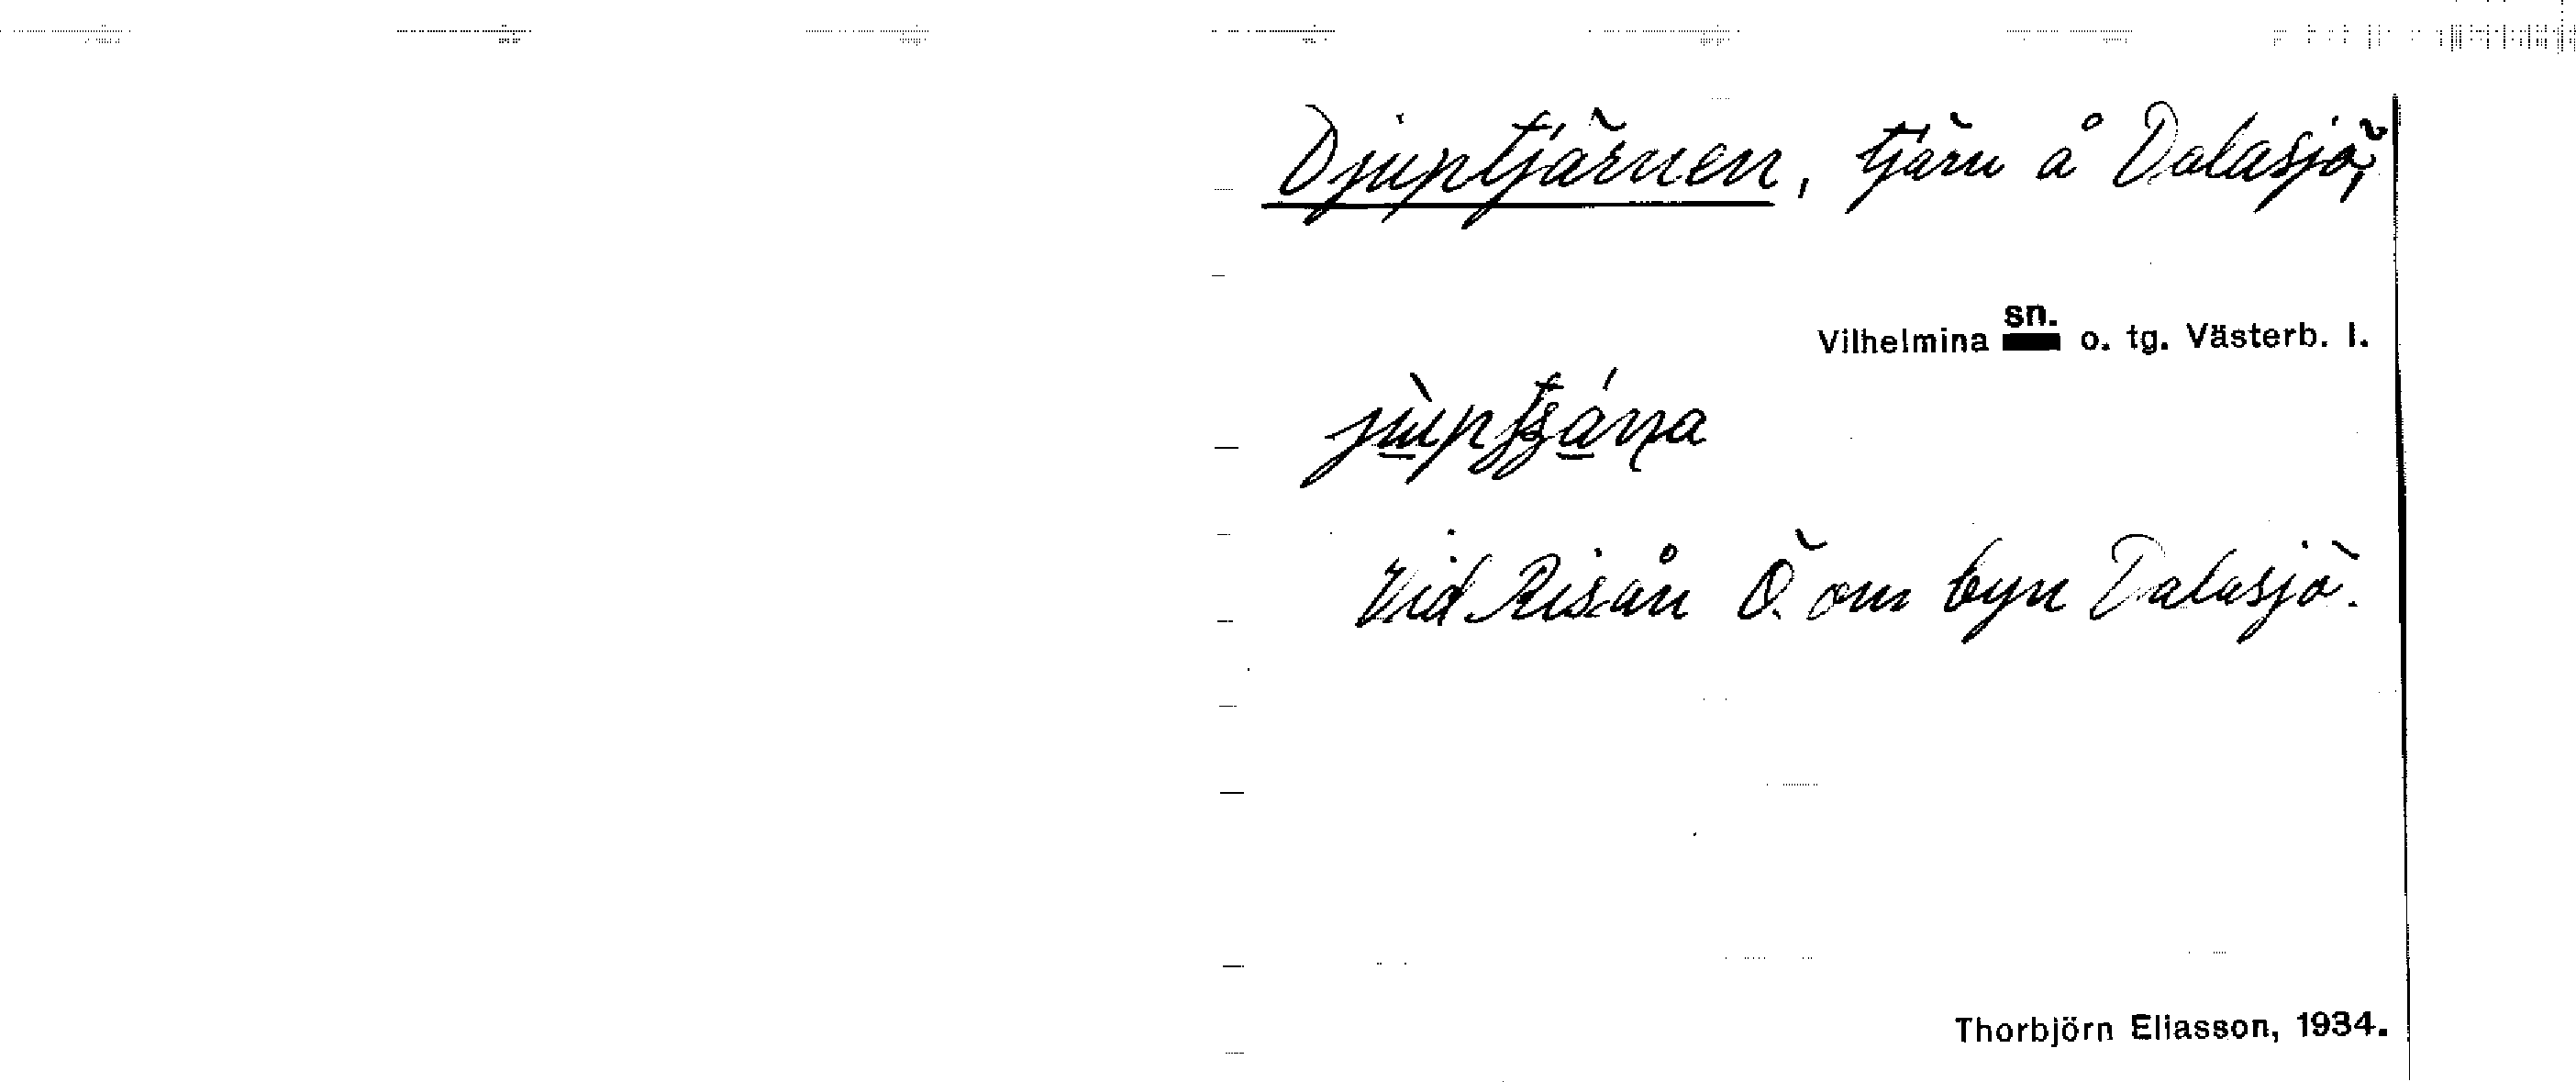 Djuptjärnen, tjärn å Dalasjö,
Vilhelmina sn. o. tg. Västerb. l.
Vid Risån Ö om byn Dalasjö.
Thorbjörn Eliasson, 1934.